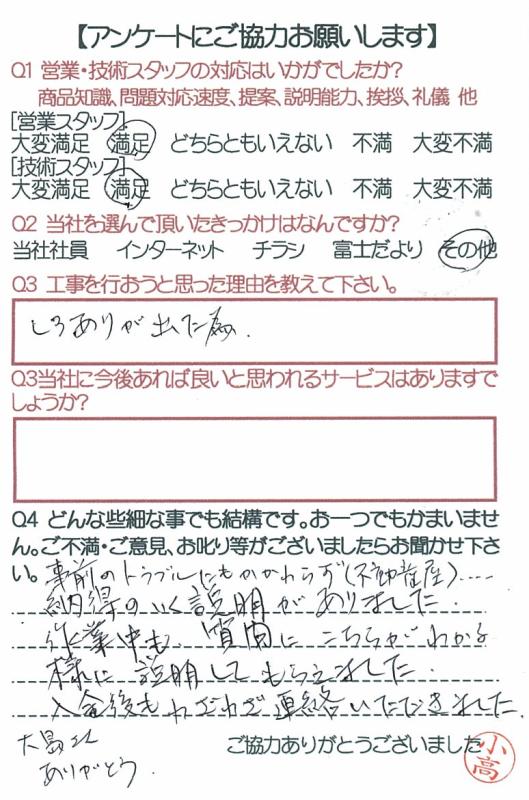 【アンケートにご協力お願いします】
Q1 営業・技術スタッフの対応はいかがでしたか？
商品知識、問題対応速度、提案、説明能力、挨拶、礼儀 他
[営業スタッフ]
大変満足 満足 どちらともいえない 不満 大変不満
[技術スタッフ]
大変満足 満足 どちらともいえない 不満 大変不満
Q2 当社を選んで頂いたきっかけはなんですか？
当社社員 インターネット チラシ 富士だより その他
Q3 工事を行おうと思った理由を教えて下さい。
しろありが出た為.
Q3当社に今後あれば良いと思われるサービスはありますで
しょうか？
Q4 どんな些細な事でも結構です。お一つでもかまいませ
ん。ご不満・ご意見、お叱り等がございましたらお聞かせ下さ
い。事前のトラブルにもかかわらず(不動産屋)....
納得のいく説明がありました.
作業中も、質問にこちらがわかる
様に説明してもらえました.
入金後もわざわざ連絡いただきました.
大畠さん
ありがとう.
ご協力ありがとうございました
小高